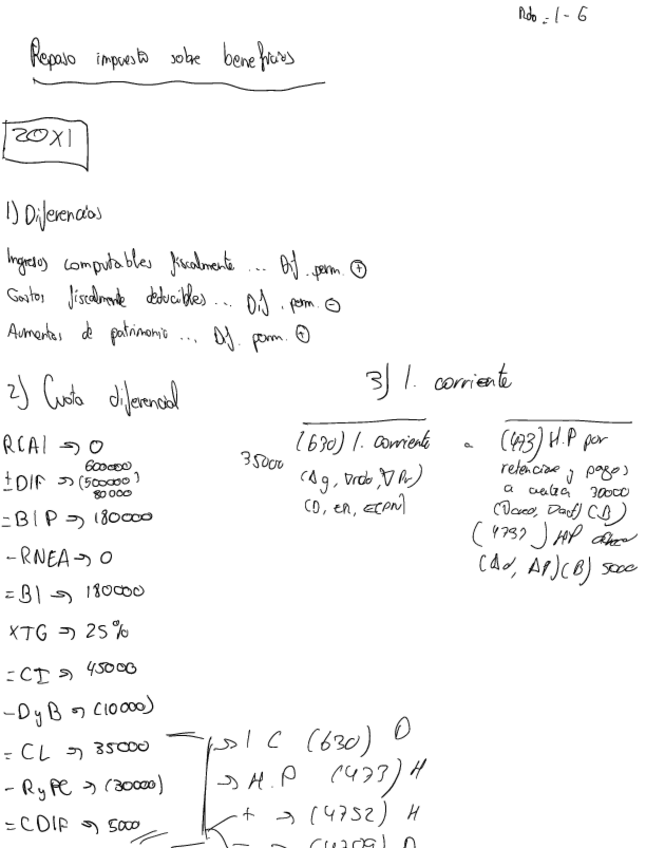 Rdo = 1 - 6
Repaso impuesto sobre beneficios
20X1
1) Diferencias
Ingresos computables fiscalmente ... Dif. perm. +
Gastos fiscalmente deducibles ... Dif. perm. -
Aumentos de patrimonio ... Dif. perm. +
2) Cuota diferencial
RCAI => 0
600000
± DIF => (500000)
80000
= BIP => 180000
- RNEA => 0
= BI => 180000
X TG => 25%
= CI => 45000
- DyB => (10000)
= CL => 35000
- RyPC => (30000)
= CDIF => 5000
3) I. corriente
35000 (630) I. corriente a (473) H.P por
retenciones y pagos
a cuenta 30000
(Δg, ∇rdo, ∇PN)
(D, ER, ECPN)
(4752) HP
(Δd, ΔP) (B) 5000
=> I C (630) D
=> H.P (473) H
+ => (4752) H
- => (4709) D